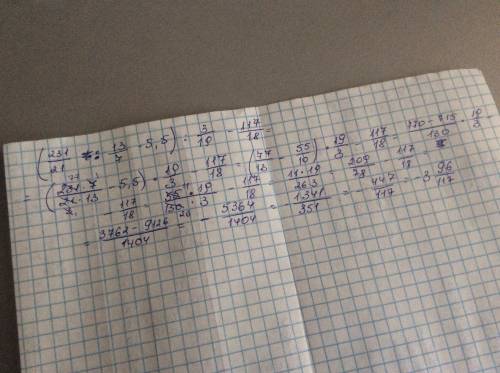 (231/21 : 13/7 - 5,5) : 3/10 - 117/18 =
= (231·7/21·13 - 5,5) · 10/3 - 117/18 = (77/13 - 55/10) · 10/3 - 117/18 = 770-715/130 · 10/3
- 117/18 = 55·10/130·3 - 117/18 = 11·19/26·3 = 209/78 - 117/18
= 3762-9126/1404 = - 5364/1404 = 1341/351 = - 447/117 = - 3 96/117